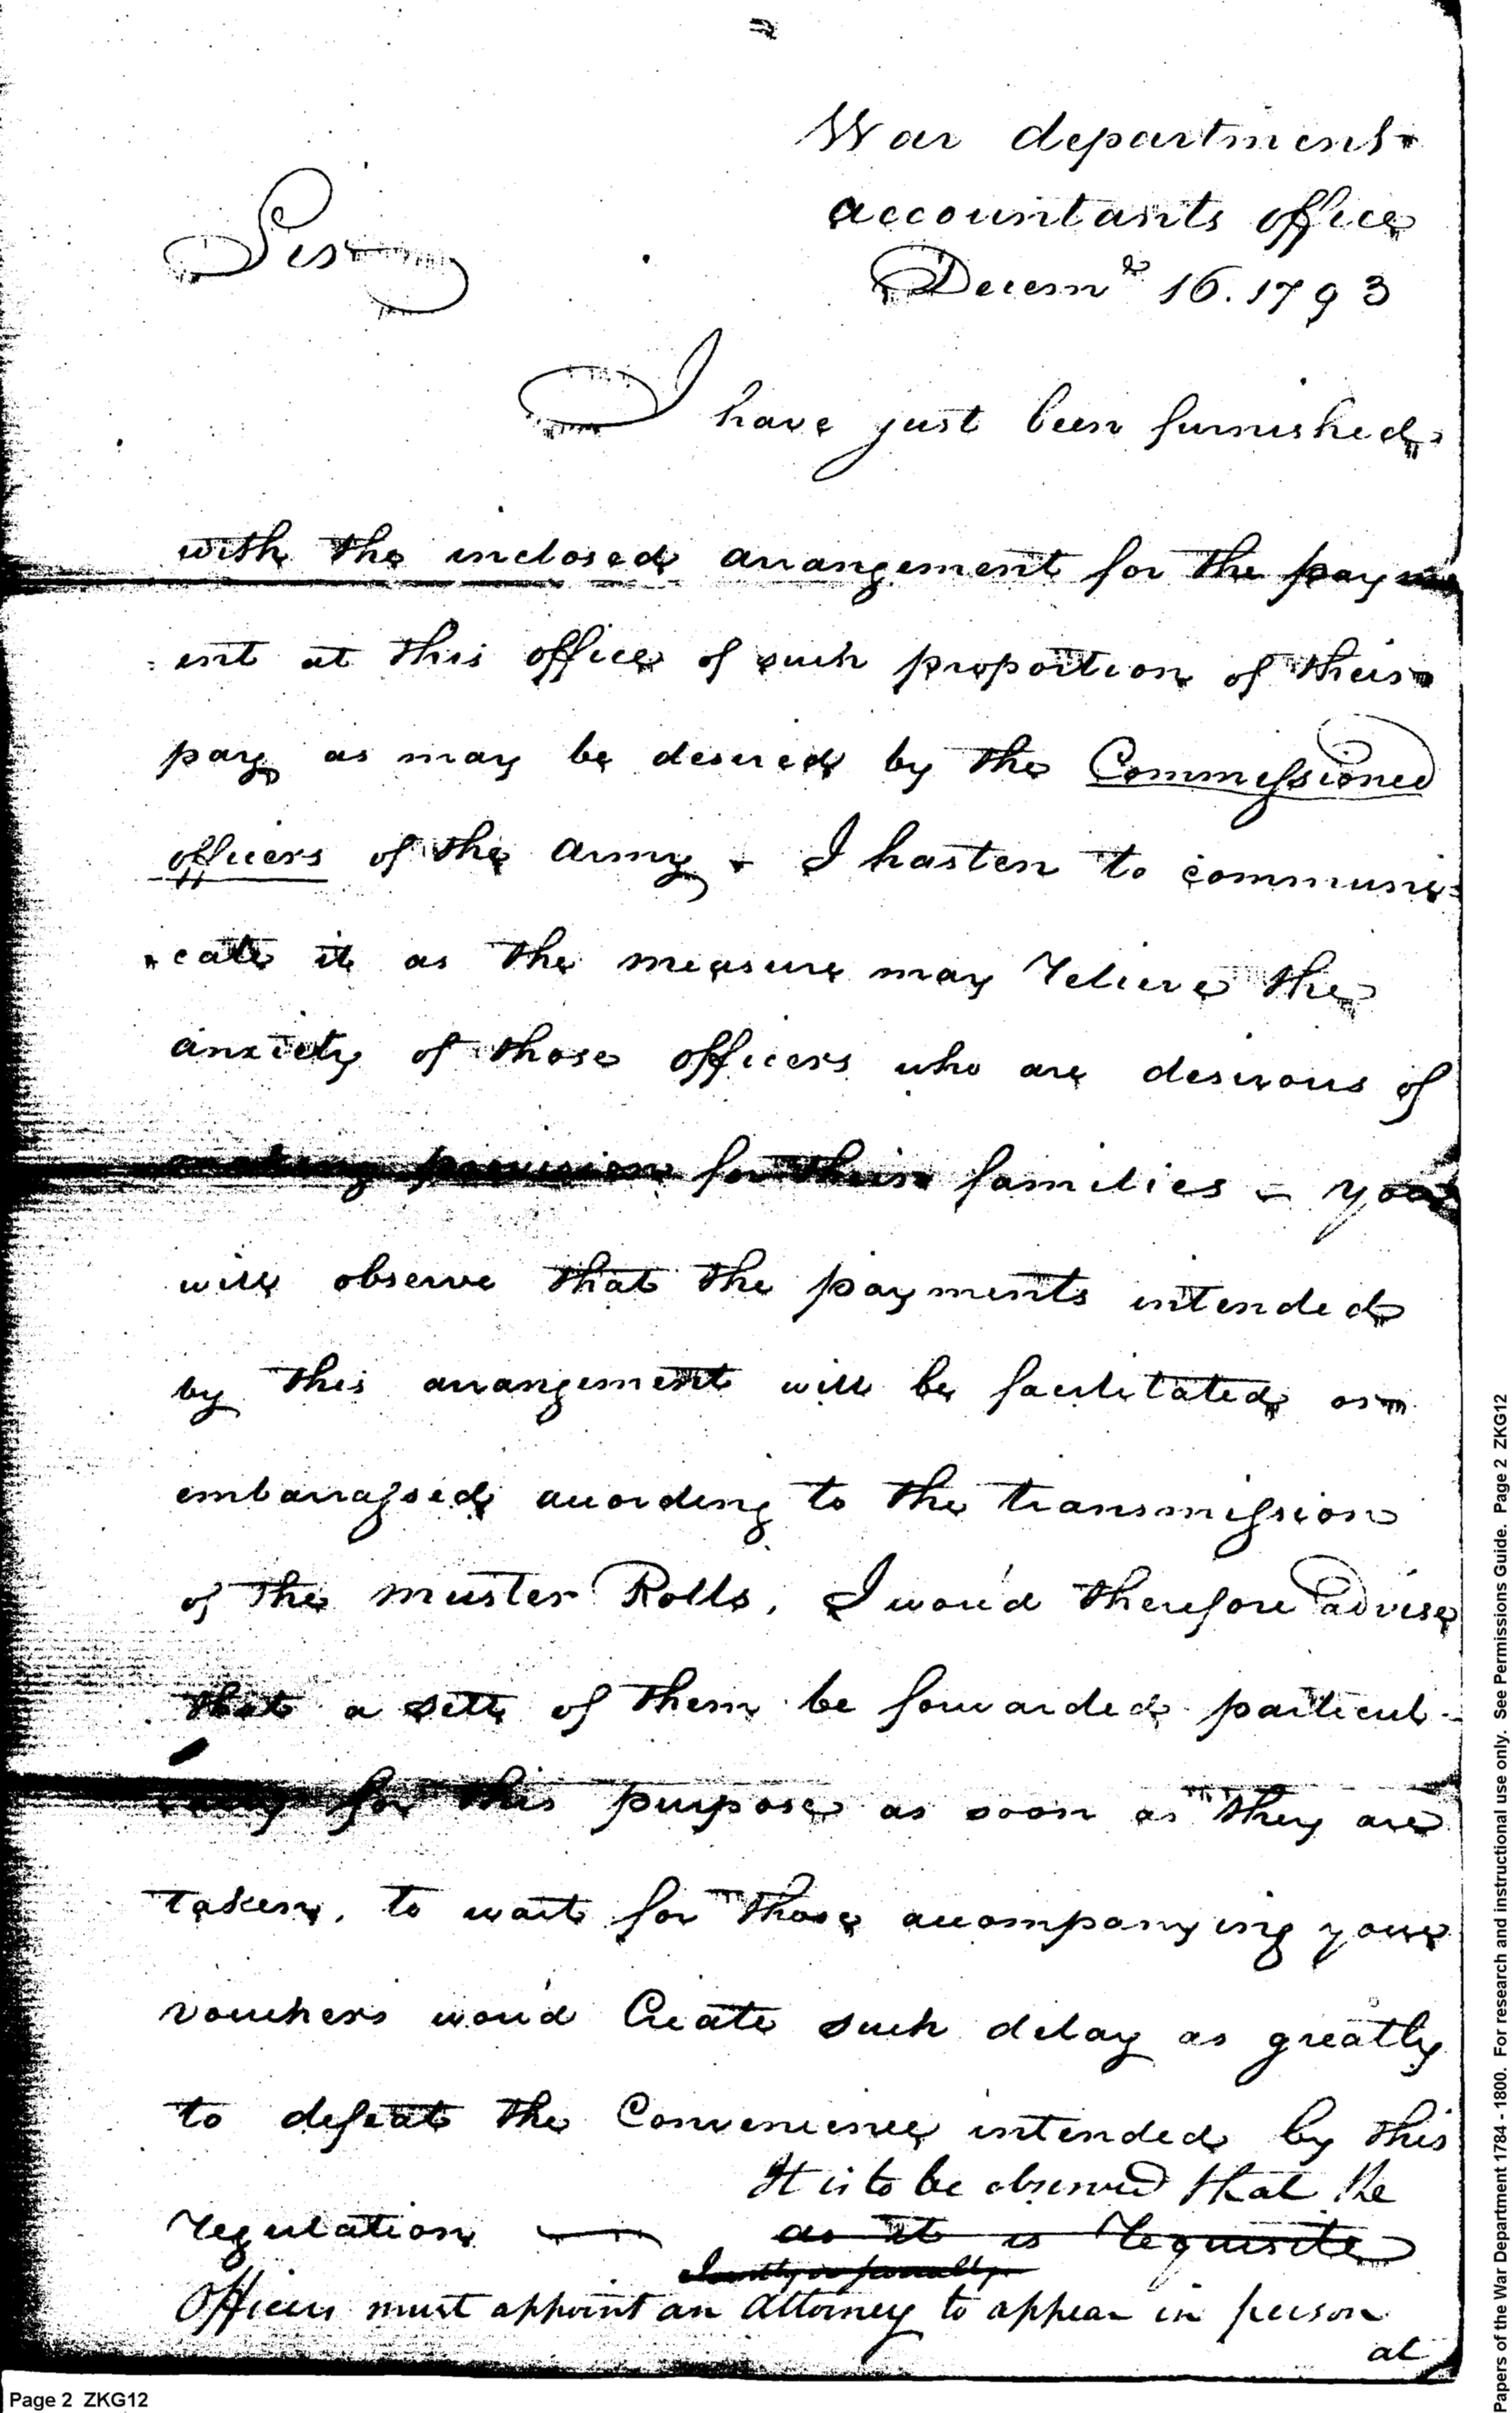 War department
accountants office
Sir
Decemr 16. 1793
I have just been furnished
with the inclosed arrangement for the paym
: ent at this office of such proportion of their
pay as may be desired by the Commissioned
officers of the army - I hasten to communi:
cate it as the measure may relieve the
anxiety of those officers who are desirous of
making provision for their families - you
will observe that the payments intended
by this arrangement will be facilitated or
embarrassed according to the transmission
of the muster Rolls, I wou'd therefore advise
that a sett of them be forwarded particul-
for this purpose as soon as they are
taken, to wait for those accompanying your
vouchers wou'd Create such delay as greatly
to defeat the Convenience intended by this
It is to be observed that the
regulation — as it is requisite
Officers must appoint an Attorney to appear in person
at
Page 2 ZKG12
Papers of the War Department 1784 - 1800. For research and instructional use only. See Permissions Guide. Page 2 ZKG12